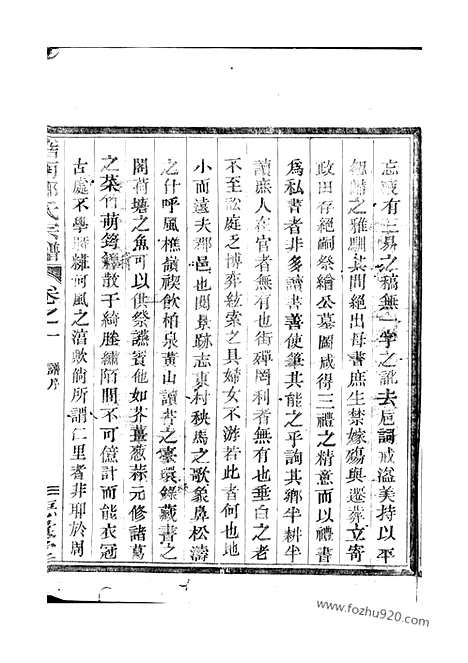 忘或有三易之稿無一字之訛去卮詞戒溢美持以平
經歸之雅馴其間絕出母書庶生禁嫁殤與遷葬立寄
政田存絕嗣祭繪公墓圖咸得三禮之精意而以禮書
為私書者非多讀書善使筆其能之乎詢其鄉半耕半
讀庶人在官者無有也街彈罔利者無有也垂白之老
不至訟庭之博弈絃索之具婦女不游若此者何也地
小而遠夫郡邑也閱景跡志東村秧馬之歌象鼻松濤
之什呼風樵嶺禊飲柏泉黃山讀書之寮環錄藏書之
閣荷塘之魚可以供祭讌賓他如芥薑薇蒜元修諸葛
之菜竹萌錦籜散于綺塍繡陌間不可億計而能衣冠
古處不學時雖何風之淯歟倘所謂仁里者非耶於周
南 氏宗譜 卷之一 譜序
www.fozhu920.com